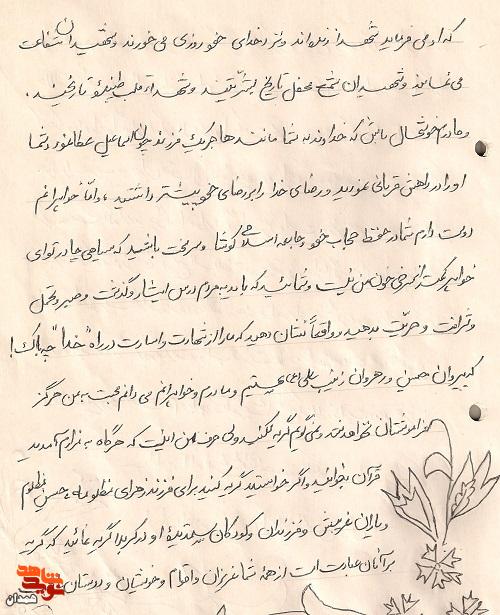 که او می فرماید شهدا زنده اند و نزد خدای خود روزی می خورند و شهیدان شفاعت
می نمایند و شهیدان شمع محفل تاریخ بشریتند و شهدا قلب طپنده تاریخند.
و مادرم خوشحال باش که خداوند به شما مانند هاجر یک فرزند چون اسماعیل عطا نمود و شما
او را در راهش قربانی نمودید و رضای خدا را بر رضای خود بیشتر داشتید، و امّا خواهرانم
دوست دارم شما در حفظ حجاب خود و جامعه اسلامی کوشا و سرسخت باشید که سیاهی چادر تو ای
خواهر کمتر از سرخی خون من نیست و شمائید که باید به مردم درس ایثار و گذشت و صبر و تحمل
و شرافت و حریّت بدهید و واقعاً نشان دهید که ما را از شهادت و اسارت در راه "خدا" چه باک!
که پیروان حسین و رهروان زینب (س) هستیم و مادرم و خواهرانم می دانم محبت به من هرگز
فراموشتان نخواهد شد و نمی گویم گریه نکنید ولی حرف من اینست که هرگاه به مزارم آمدید
قرآن بخوانید و اگر خواستید گریه کنید برای فرزند زهرای مظلومه، حسین مظلوم
و یاران غریبش و فرزندان و کودکان ستمدیدهٔ او در کربلا گریه نمائید که گریه
بر آنان عبارت است از همهٔ شما عزیزان و اقوام و خویشان و دوستان
نوید شاهد
همدان